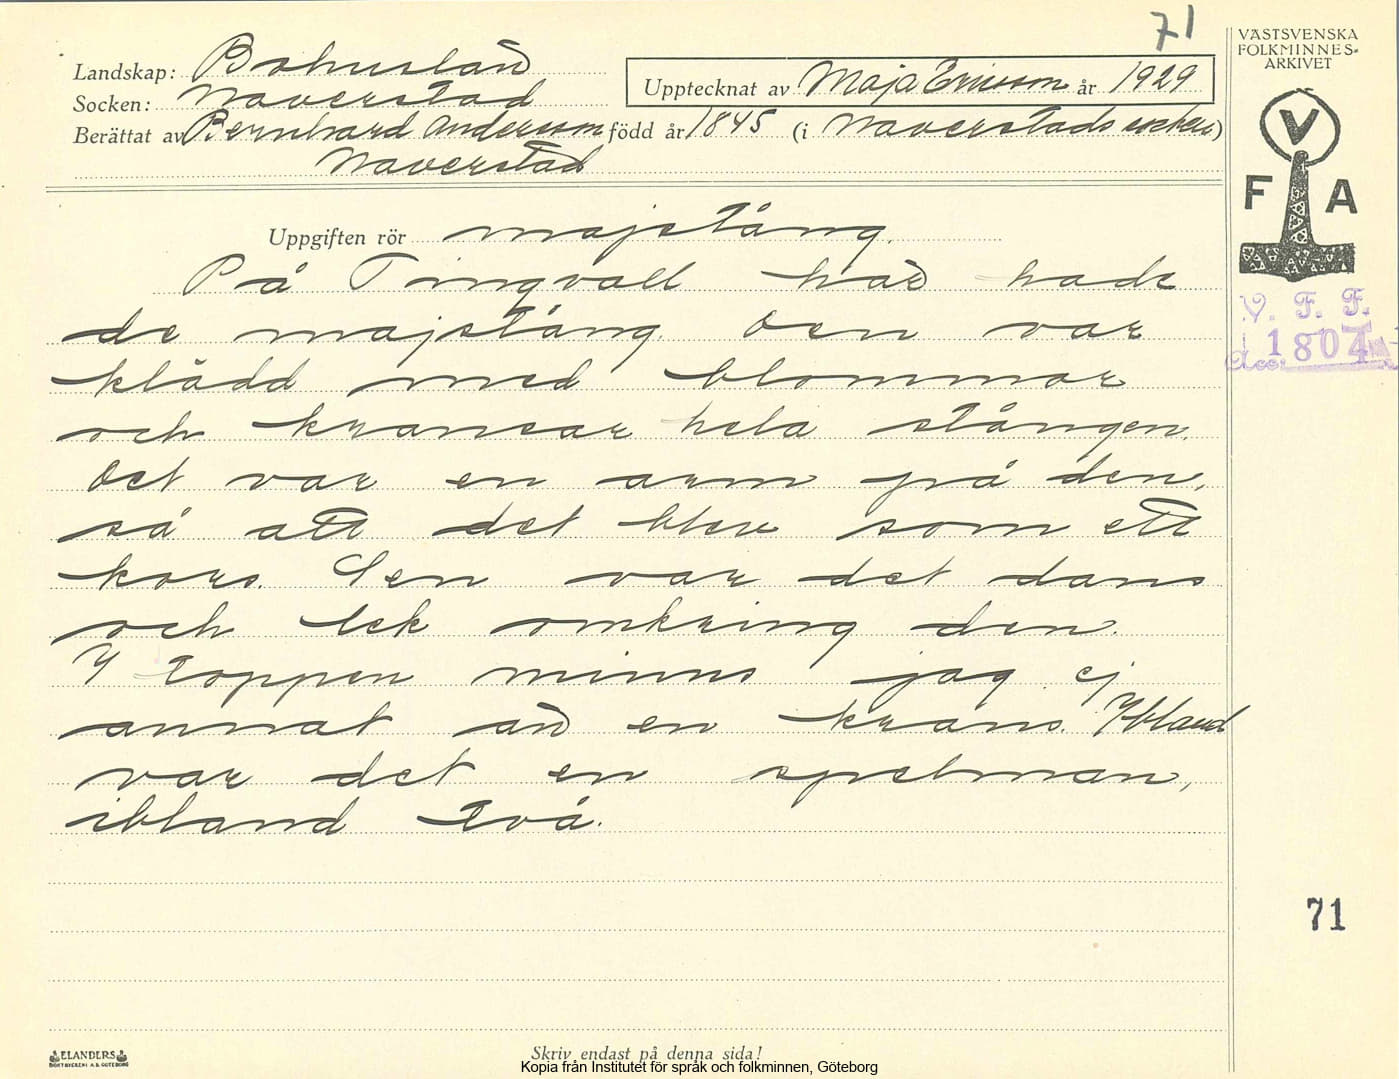 71
VÄSTSVENSKA
FOLKMINNES-
ARKIVET
Landskap: Bohuslän
Socken: Naverstad
Upptecknat av Maja Ericson år 1929
Berättat av Bernhard Andersson född år 1845 (i Naverstads socken)
Naverstad
V
F A
Uppgiften rör majstång.
På Tingvall här hade
de majstång. Den var
klädd med blommor
och kransar hela stången.
Det var en arm på den,
så att det blev som ett
kors. Sen var det dans
och lek omkring den.
I toppen minns jag ej
annat än en krans. Ibland
var det en spelman,
ibland två.
V. F. F.
Acc. 1804
71
ELANDERS
BOKTRYCKERI A.B. GÖTEBORG
Skriv endast på denna sida!
Kopia från Institutet för språk och folkminnen, Göteborg